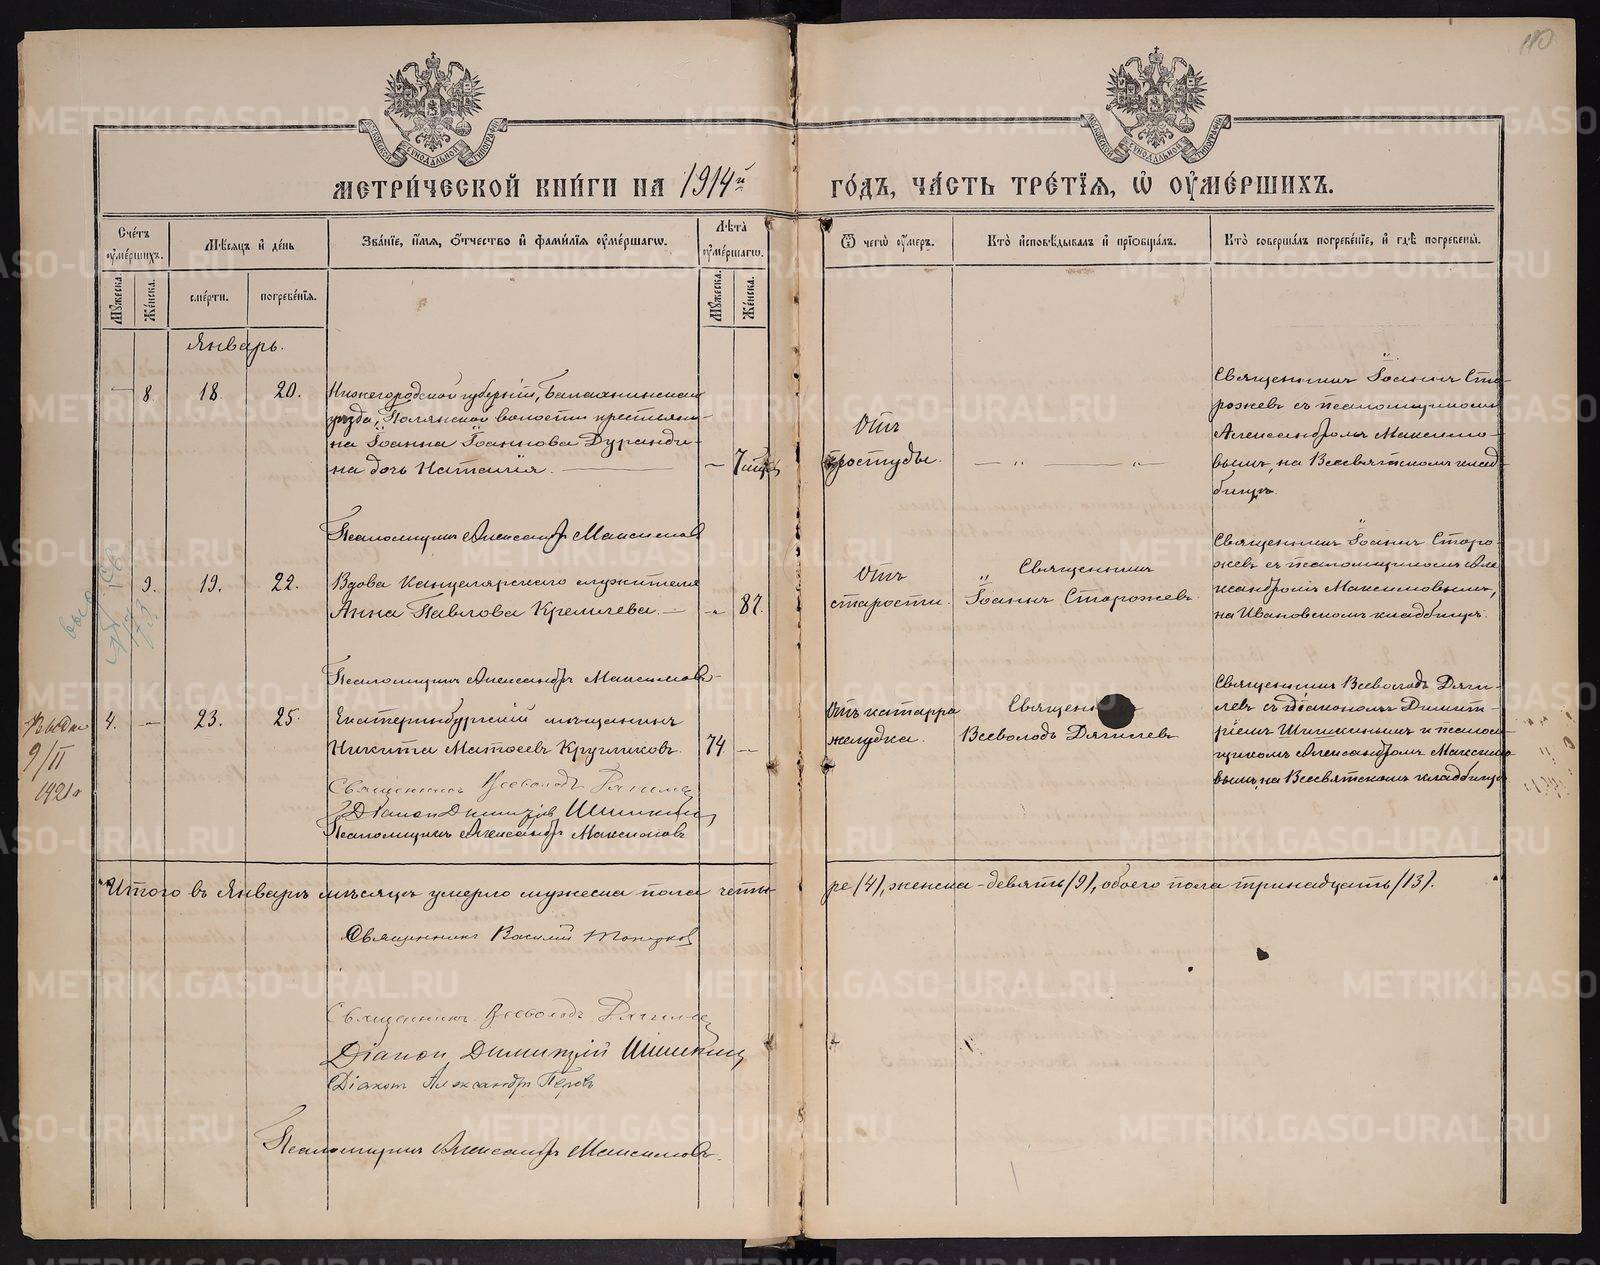 МЕТРИ́ЧЕСКОЙ КНИ́ГИ НА 1914й ГО́ДЪ, ЧА́СТЬ ТРЕ́ТІѦ, Ѡ҆ ОУ҆МЕ́РШИХЪ.
Сче́тъ оу҆ме́ршихъ.
Мѣ́сяцъ и҆ де́нь
Зва́ніе, и҆́мя, ѻ҆́тчество и҆ фами́лїѧ оу҆ме́ршагѡ.
Лѣ́та оу҆ме́ршагѡ.
Ѿ чегѡ̀ оу҆́меръ.
Кто̀ и҆сповѣ́дывалъ и҆ прїѡбща́лъ.
Кто̀ соверша́лъ погребе́нїе, и҆ гдѣ̀ погребены̀.
Му́жеска.
Же́нска.
сме́рти.
погребе́нїѧ.
Му́жеска.
Же́нска.
Январь.
— 8. 18. 20.
Нижегородской губерніи, Балахнинскаго
уѣзда, Полянской волости крестьяни-
на Іоанна Іоаннова Дуранди-
на дочь Наталія.
—
Отъ
простуды.
— „ — „ —
Священникъ Іоаннъ Сто-
рожевъ съ псаломщикомъ
Александромъ Максимо-
вымъ, на Всесвятскомъ клад-
бищѣ.
Псаломщикъ Александръ Максимовъ
9. 19. 22.
Вдова канцелярскаго служителя
Анна Павлова Кремлева. —
87.
Отъ
старости.
Священникъ
Іоаннъ Сторожевъ.
Священникъ Іоаннъ Сторо-
жевъ съ псаломщикомъ Але-
ксандромъ Максимовымъ,
на Ивановскомъ кладбищѣ.
Псаломщикъ Александръ Максимовъ.
4. — 23. 25.
Екатеринбургскій мѣщанинъ
Никита Матѳеевъ Кругликовъ.
74 —
Отъ катарра
желудка.
Священникъ
Всеволодъ Дягилевъ
Священникъ Всеволодъ Дяги-
левъ съ діакономъ Димит-
ріемъ Шишкинымъ и псалом-
щикомъ Александромъ Максимо-
вымъ, на Всесвятскомъ кладбищѣ
Священникъ Всеволодъ Дягилевъ
Діаконъ Димитрій Шишкинъ
Псаломщикъ Александръ Максимовъ
9/II
1921 г
Итого въ Январѣ мѣсяцѣ умерло мужеска пола четы-
ре (4), женска - девять (9), обоего пола тринадцать (13).
Священникъ Василій
Священникъ Всеволодъ Дягилевъ
Діаконъ Димитрій Шишкинъ
Діаконъ Александръ
Псаломщикъ Александръ Максимовъ.
METRIKI.GASO-URAL.RU